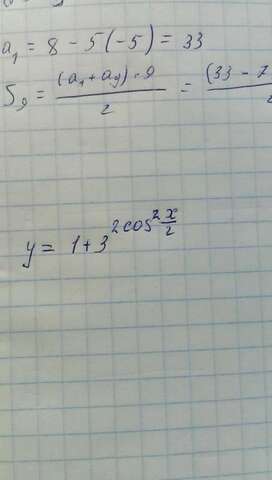 a₁ = 8 - 5(-5) = 33
S₉ = (a₁ + a₉) · 9 / 2 = (33 - 7
y = 1 + 3^(2cos² x/2)